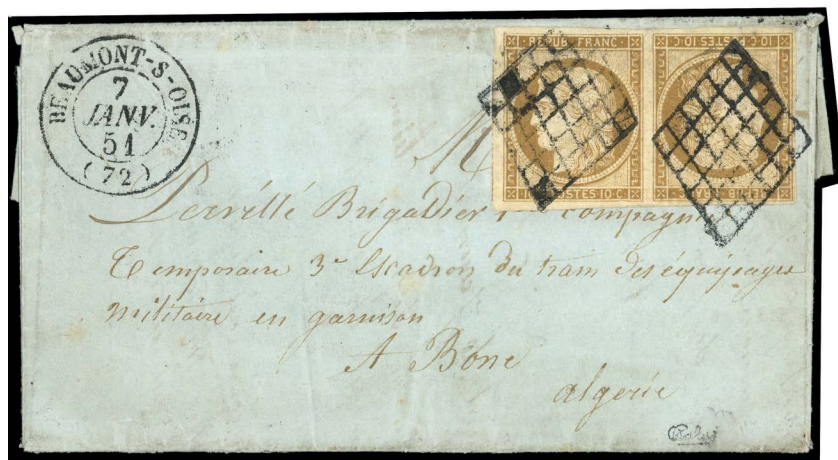 BEAUMONT-S-OISE
7
JANV.
51
(72)
REPUB FRANC
10 C POSTES 10 C
REPUB FRANC
10 C POSTES 10 C
M
Brigadier 1re Compagnie
Temporaire 3e Escadron du train des équipages
militaire en garnison
A Bone
algerie